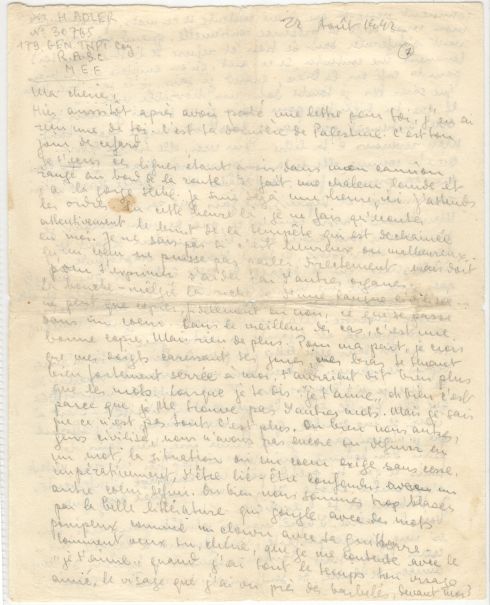 H. ADLER
N° 30765
179 GEN. TNPT Coy
R.A.S.C.
M E F
22 Août 1942
Ma chérie,
Hier aussitôt après avoir posté une lettre pour toi, j'en ai
reçu une de toi. C'est la dernière de Palestine. C'est ton
jour de
Je t'écris ces lignes étant assis dans mon camion
rangé au bord de la route. Il fait une chaleur lourde et
j'ai la gorge sèche. Je suis déjà une heure ici. J'attends
les ordres. À cette heure ci je ne fais qu'écouter
attentivement le bruit de la tempête qui est déchainée
en moi. Je ne sais pas si c'est heureux ou malheureux
qu'un coeur ne puisse pas parler directement mais doit
pour s'exprimer s'aider par d'autres organes.
La bouche
ne peut que copier, fidèlement ou non, ce qui se passe
dans un coeur. Dans le meilleur des cas, c'est une
bonne copie. Mais rien de plus. Pour ma part, je crois
que mes doigts caressant tes joues, mes bras te tenant
bien fortement serrée à moi, t'auraient dit bien plus
que les mots. Lorsque je te dis "Je t'aime", eh bien c'est
parce que je ne trouve pas d'autres mots. Mais je sais
que ce n'est pas tout. C'est plus. Ou bien nous autres,
gens civilisés, nous n'avons pas encore su définir en
un mot, la situation où un coeur exige sans cesse,
impérativement, d'être lié - être confondu avec un
autre coeur défini. Ou bien nous sommes trop blasés
par la belle littérature qui jongle avec des mots
pompeux comme un clown avec sa guitare.
Comment veux tu, chérie, que je me contente avec le
"je t'aime" quand j'ai tout le temps ton visage
aimé, le visage que j'ai vu près des barbelés, devant moi?